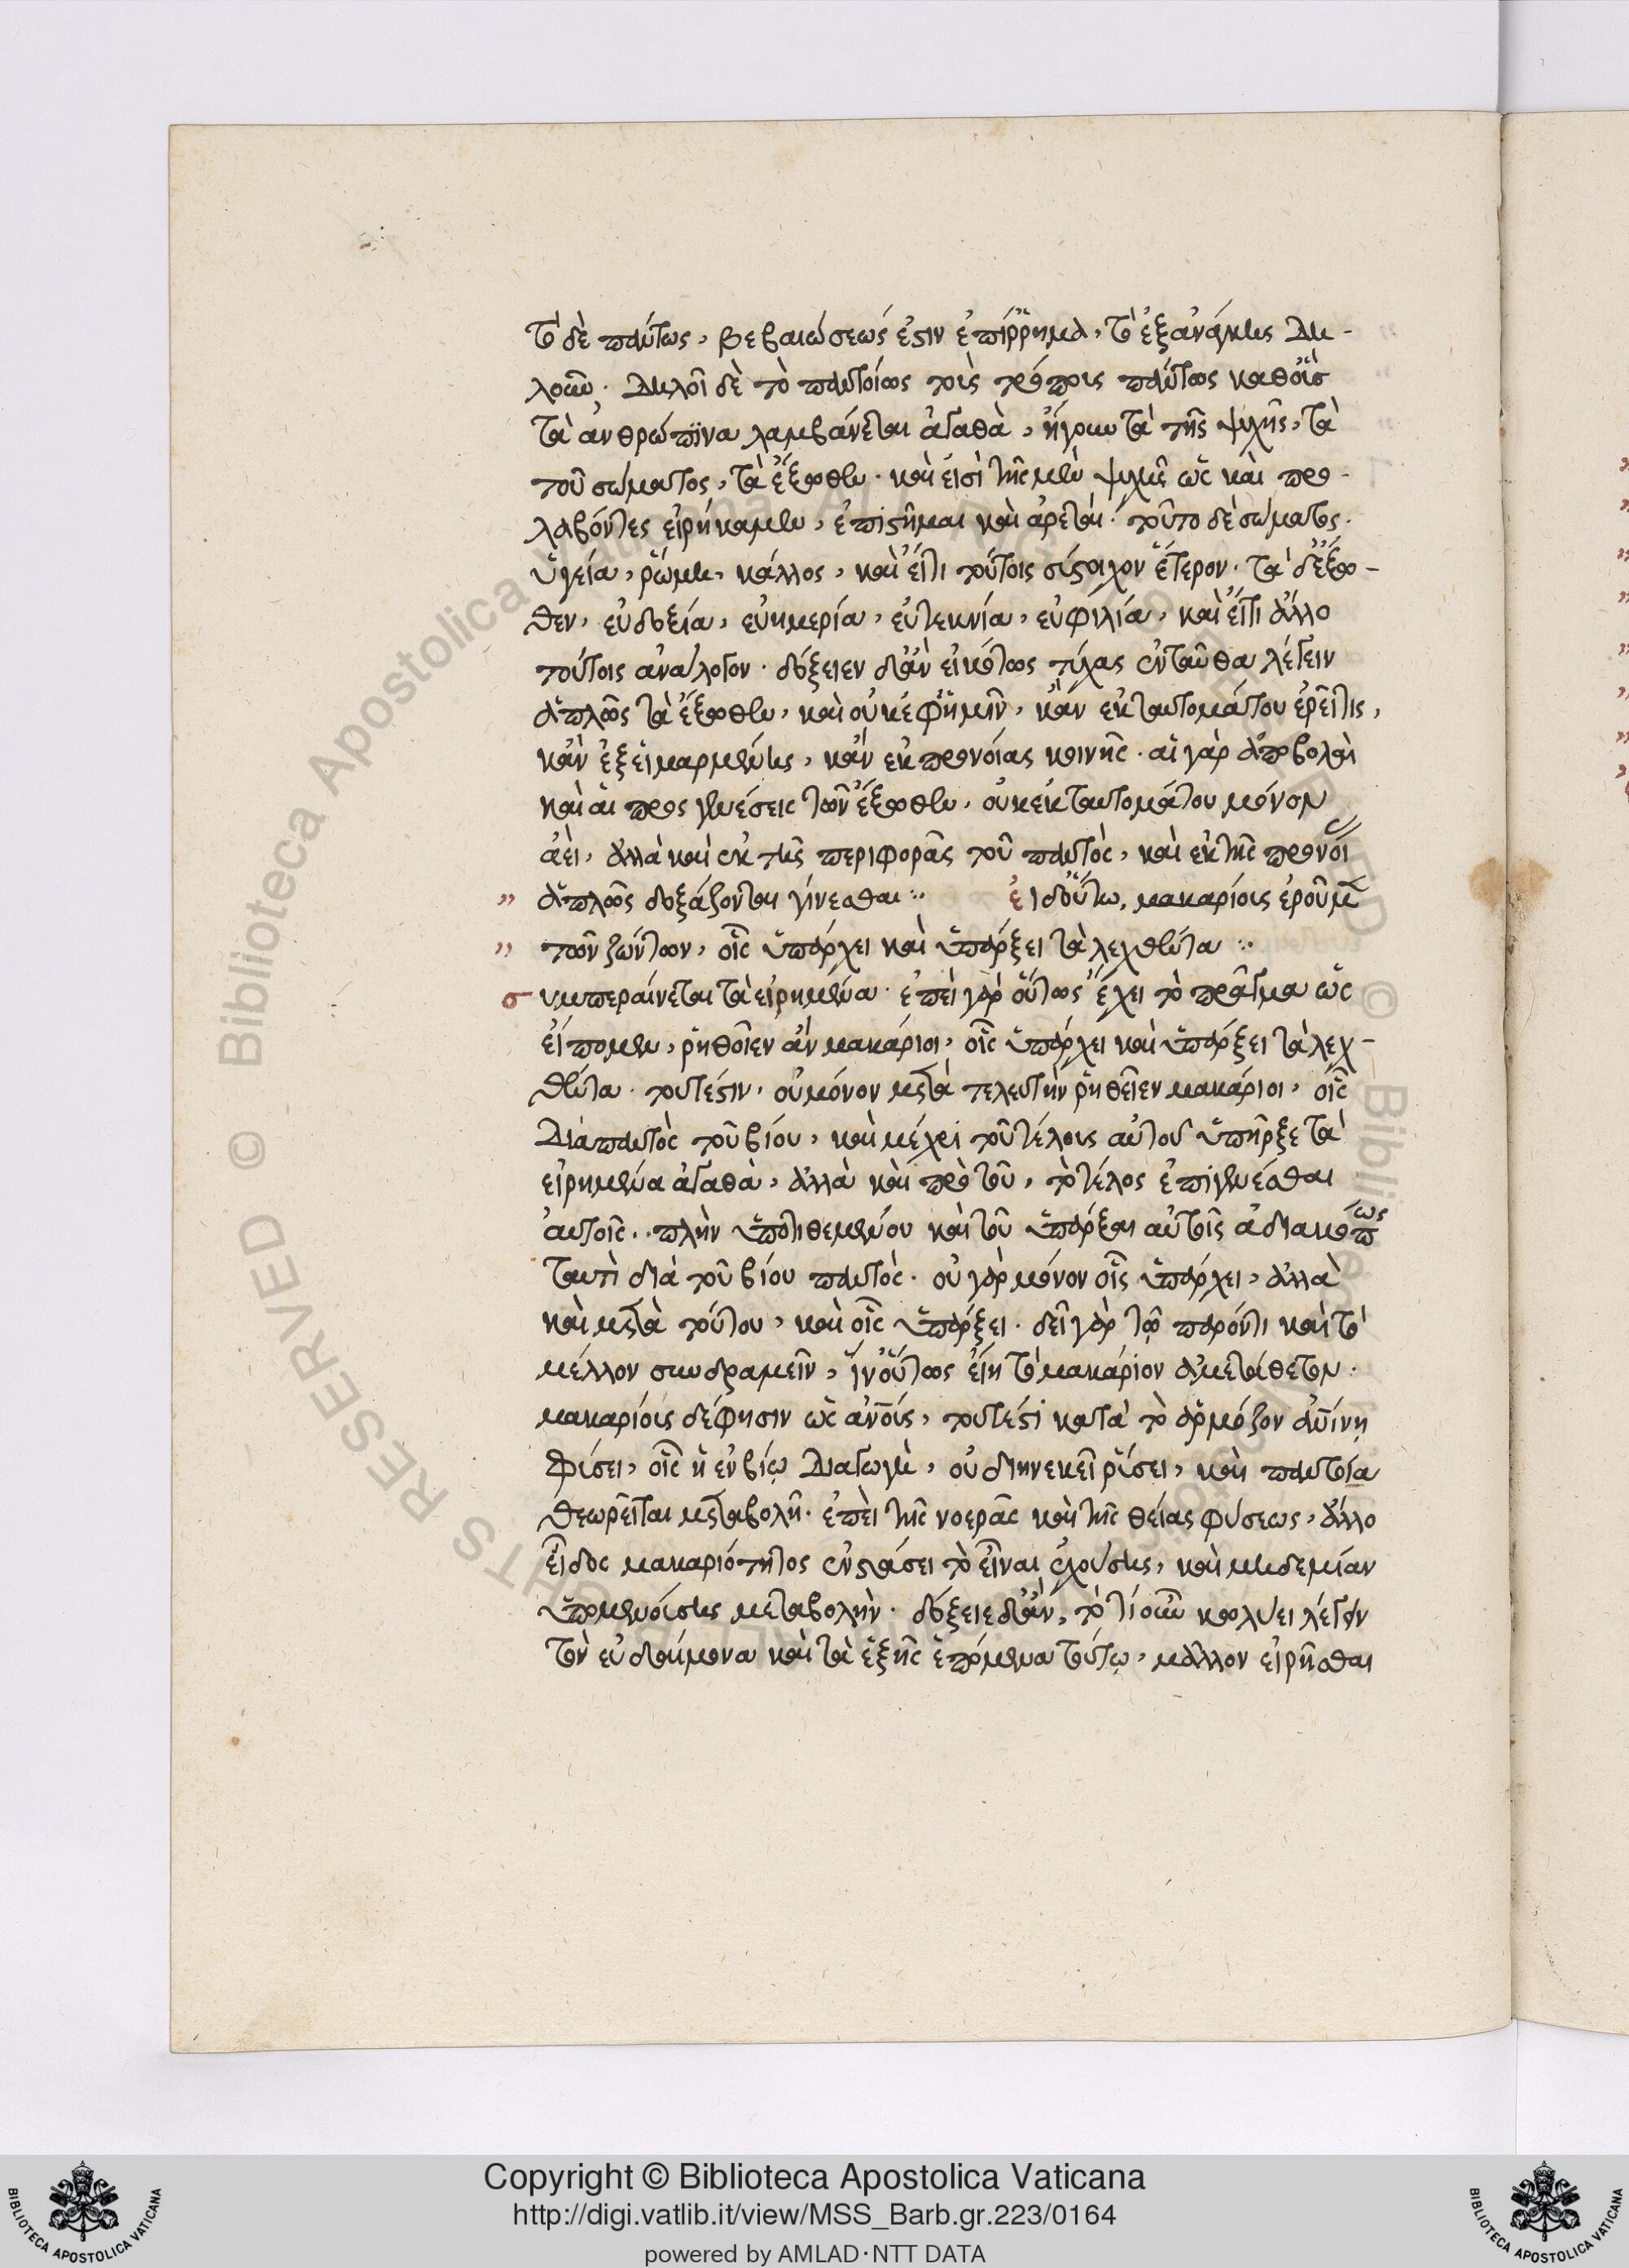 τὸ δὲ πάντως, βεβαιώσεώς ἐστιν ἐπίρρημα, τὸ ἐξανάγκης δη-
λοῦν. δηλοῖ δὲ τὸ παντοίως τοὺς τρόπους πάντας καθοὓσ
τὰ ἀνθρώπινα λαμβάνεται ἀγαθὰ, ἤγουν τὰ τῆς ψυχῆς, τὰ
τοῦ σώματος, τὰ ἔξωθεν. καὶ εἰσὶ τῆς μὲν ψυχῆς ὡς καὶ προ-
λαβόντες εἰρήκαμεν, ἐπιστῆμαι καὶ ἀρεταί. τοῦτο δὲ σώματος.
ὑγεία, ῥώμη, κάλλος, καὶ εἴτι τούτοις σύστοιχον ἕτερον. τὰ δ' ἔξω-
θεν, εὐδοξία, εὐημερία, εὐτεκνία, εὐφιλία, καὶ εἴτι ἄλλο
τούτοις ἀνάλογον. δόξειεν δ' ἂν εἰκότως τύχας ἐνταῦθα λέγειν
ἁπλῶς τὰ ἔξωθεν, καὶ οὐκ ἐφ' ἡμῖν, κἂν ἐκ ταυτομάτου ἐρεῖ τις,
κἂν ἐξ εἱμαρμένης, κἂν ἐκ προνοίας κοινῆς. αἱ γὰρ ἀποβολαὶ
καὶ αἱ προσγενέσεις τῶν ἔξωθεν, οὐκ ἐκ ταυτομάτου μόνον
ἀεὶ, ἀλλὰ καὶ ἐκ τῆς περιφορᾶς τοῦ παντὸς, καὶ ἐκ τῆς προνοί
ἁπλῶς δοξάζονται γίνεσθαι :· εἰ δ' οὕτω, μακαρίους ἐροῦμεν
τῶν ζώντων, οἷς ὑπάρχει καὶ ὑπάρξει τὰ λεχθέντα :·
συμπεραίνεται τὰ εἰρημένα. ἐπεὶ γὰρ οὕτως ἔχει τὸ πρᾶγμα ὡς
εἴπομεν, ῥηθοῖεν ἂν μακάριοι, οἷς ὑπάρχει καὶ ὑπάρξει τὰ λεχ-
θέντα. τουτέστιν, οὐ μόνον μετὰ τελευτὴν ῥηθεῖεν μακάριοι, οἷς
διαπαντὸς τοῦ βίου, καὶ μέχρι τοῦ τέλους αὐτοῦ ὑπῆρξε τὰ
εἰρημένα ἀγαθὰ, ἀλλὰ καὶ πρὸ τοῦ, τὸ τέλος ἐπιγενέσθαι
αὐτοῖς.. πλὴν ὑποτιθεμένου καὶ τοῦ ὑπάρξαι αὐτοῖς ἀδιακόπως
ταυτὶ διὰ τοῦ βίου παντός. οὐ γὰρ μόνον οἷς ὑπάρχει, ἀλλὰ
καὶ μετὰ τούτου, καὶ οἷς ὑπάρξει. δεῖ γὰρ τῷ παρόντι καὶ τὸ
μέλλον συνδραμεῖν, ἵν' οὕτως εἴη τὸ μακάριον ἀμετάθετον.
μακαρίους δέ φησιν ὡς ἀνοῖς, τουτέστι κατὰ τὸ ἁρμόζον ἀνίνῃ
φύσει, οἷς ἡ ἐν βίῳ διαγωγὴ, οὐ διηνεκεῖ ῥύσει, καὶ παντοία
θεωρεῖται μεταβολῇ. ἐπεὶ τῆς νοερᾶς καὶ τῆς θείας φύσεως, ἄλλο
εἶδος μακαριότητος ἐν στάσει τὸ εἶναι ἐχούσης, καὶ μηδεμίαν
ὑπομενούσης μεταβολὴν. δόξειε δ' ἂν, τὸ τί οὖν κωλύει λέγειν
τὸν εὐδαίμονα καὶ τὰ ἑξῆς ἑπόμενα τούτῳ, μᾶλλον εἰρῆσθαι
Copyright © Biblioteca Apostolica Vaticana
http://digi.vatlib.it/view/MSS_Barb.gr.223/0164
powered by AMLAD·NTT DATA